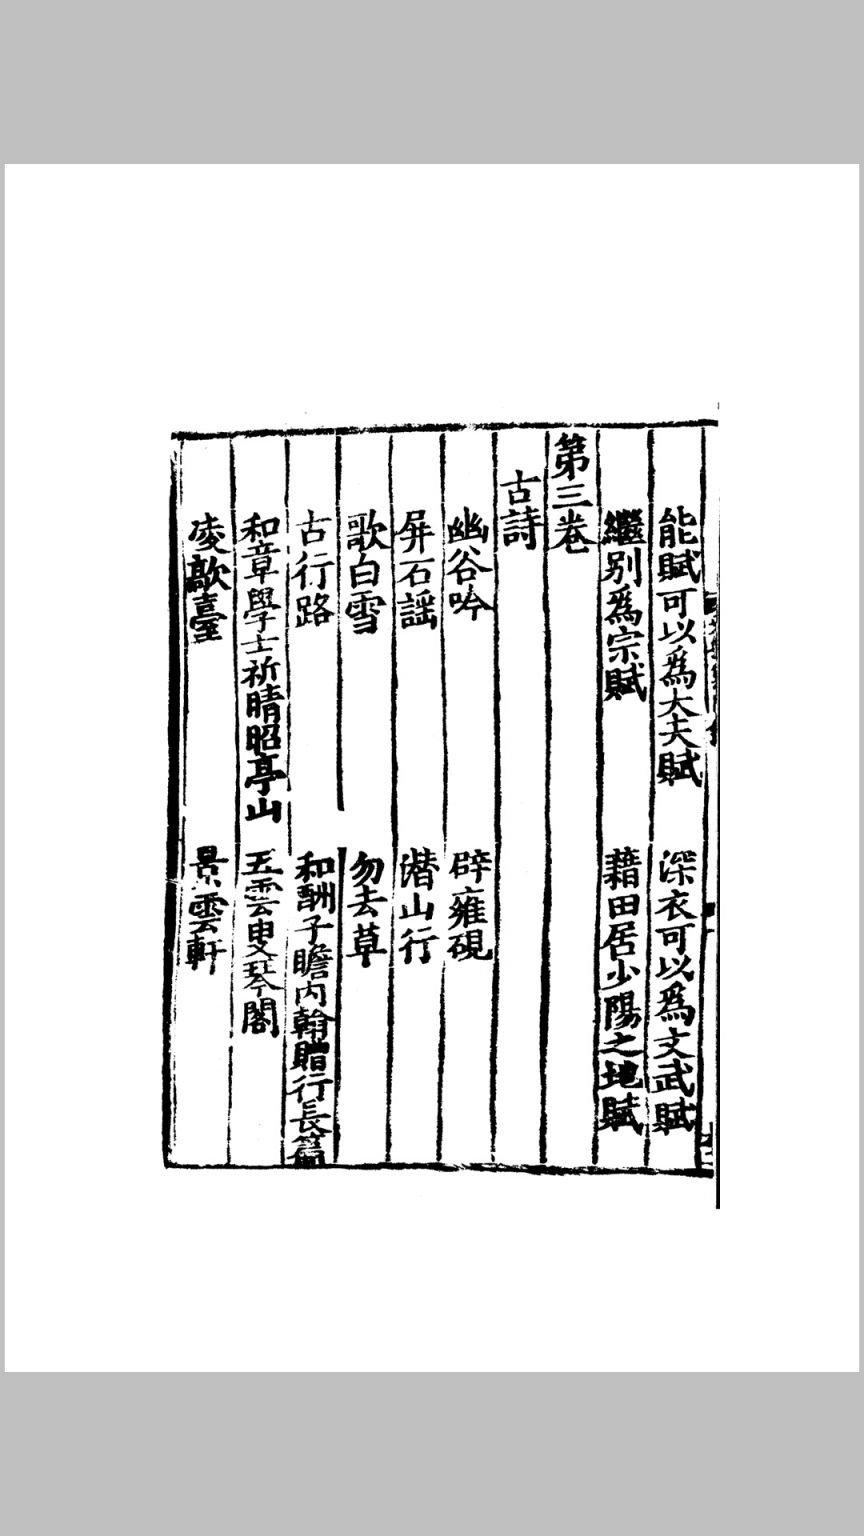 能賦可以爲大夫賦　深衣可以爲文武賦
繼别爲宗賦　藉田居少陽之地賦
第三卷
古詩
幽谷吟　辟雍硯
屏石謡　潜山行
歌白雪　勿去草
古行路　和酬子瞻内翰贈行長篇
和章學士祈晴昭亭山　五雲叟琴閣
凌歊臺　景雲軒